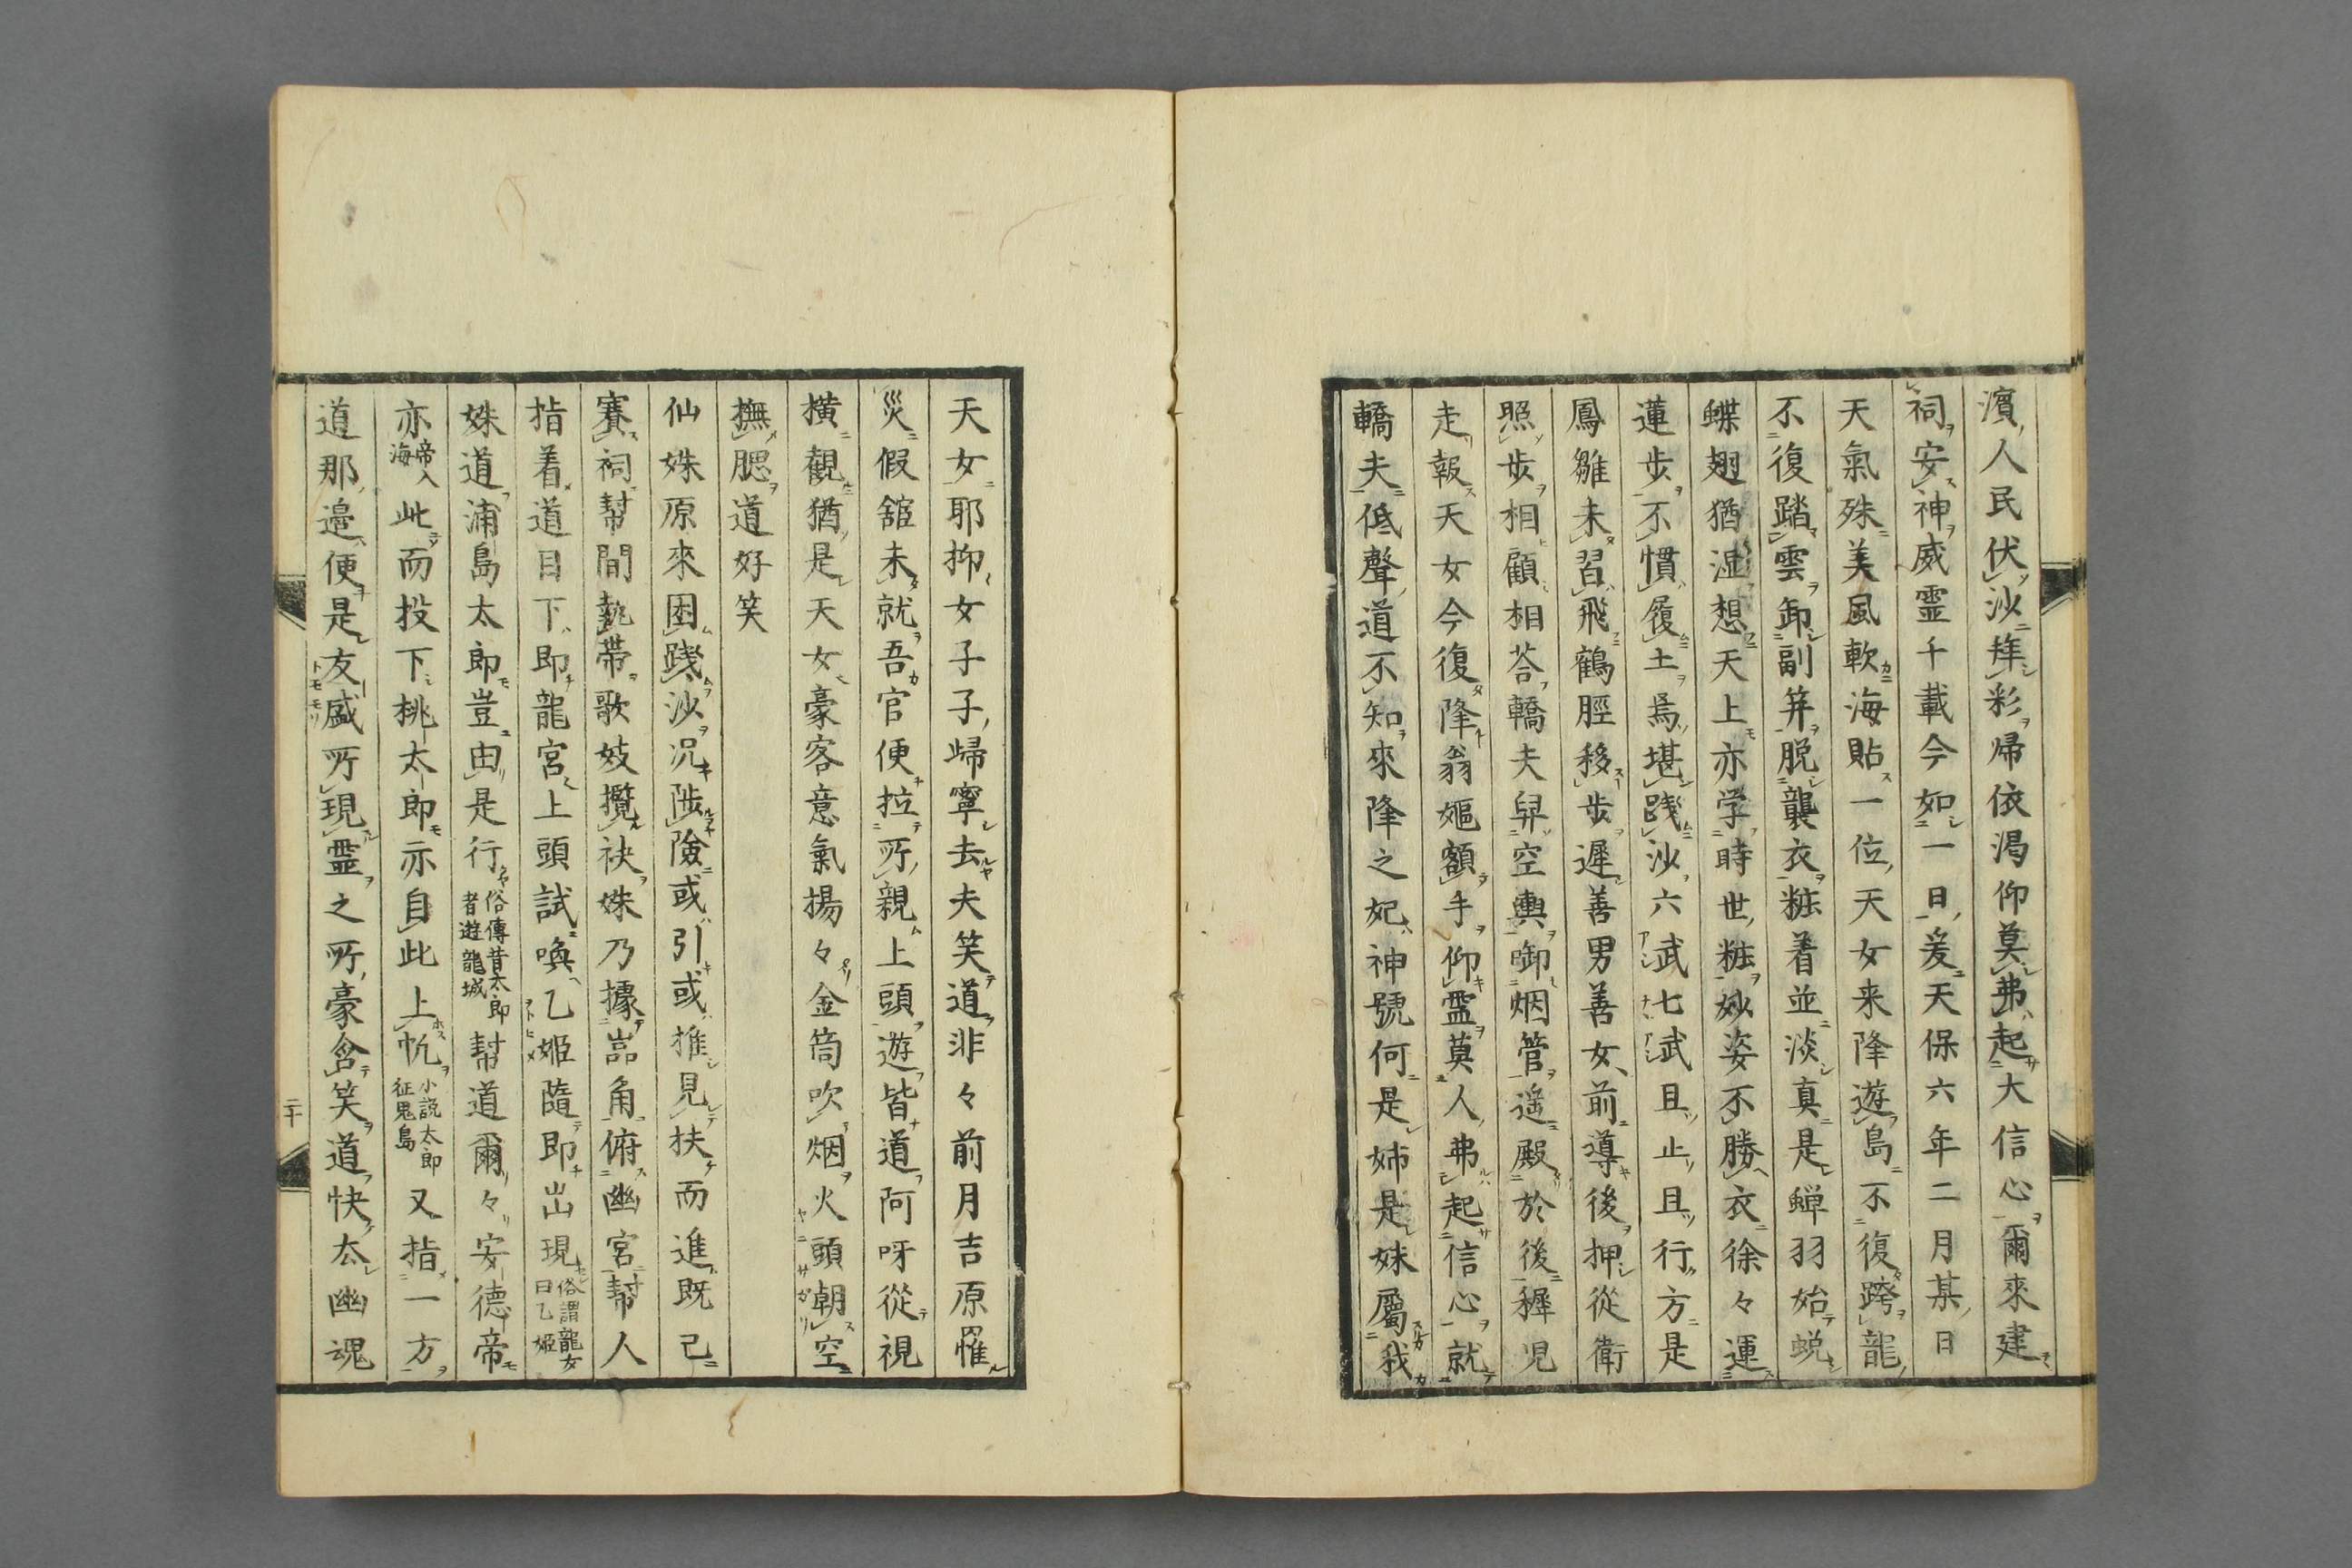 濱人民伏沙拜彩帰依渇仰莫弗起大信心爾來建
祠安神威霊千載今如一日爰天保六年二月某日
天氣殊美風軟海貼一位天女来降遊島不復跨龍
不復踏雲卸副笄脱襲衣粧着並淡真是蝉羽始蛻
蝶翅猶湿想天上亦学時世粧妙姿不勝衣徐々運
蓮歩不慣履土焉堪踐沙六武七武且止且行方是
鳳雛未習飛鶴脛移歩遲善男善女前導後押從衛
照歩相顧相荅轎夫舁空輿啣烟管遥殿於後穉児
走報天女今復降翁嫗額手仰霊莫人弗起信心就
轎夫低聲道不知來降之妃神號何是姉是妹屬我
天女耶抑女子子歸寧去夫笑道非々前月吉原罹
災假舘未就吾官便拉所親上頭遊皆道阿呀從視
横觀猶是天女豪客意氣揚々金筒吹烟火頭朝空
撫腮道好笑
仙姝原來困踐沙况陟險或引或推見扶而進既已
賽祠幇間執帯歌妓攬袂姝乃據嵓角俯幽宮幇人
指着道目下即龍宮上頭試喚乙姫隨即出現俗謂龍女曰乙姫
姝道浦島太郎豈由是行俗傳昔太郎者遊龍城幇道爾々安德帝
亦帝入海此而投下桃太郎亦自此上帆小説太郎征鬼島又指一方
道那邉便是友盛所現霊之所豪含笑道快厺幽魂
二十